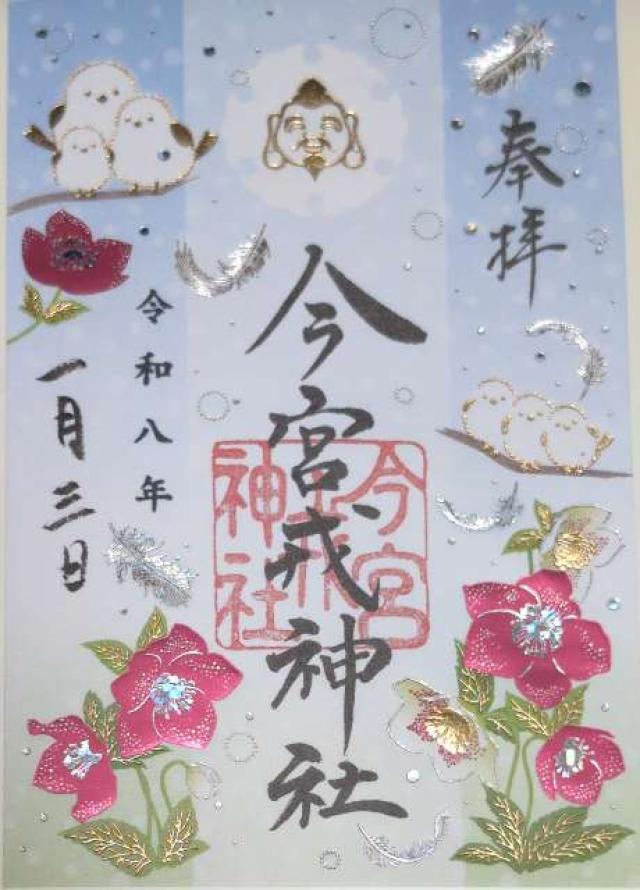 奉拝
今宮戎神社
今宮戎神社
令和八年
一月三日